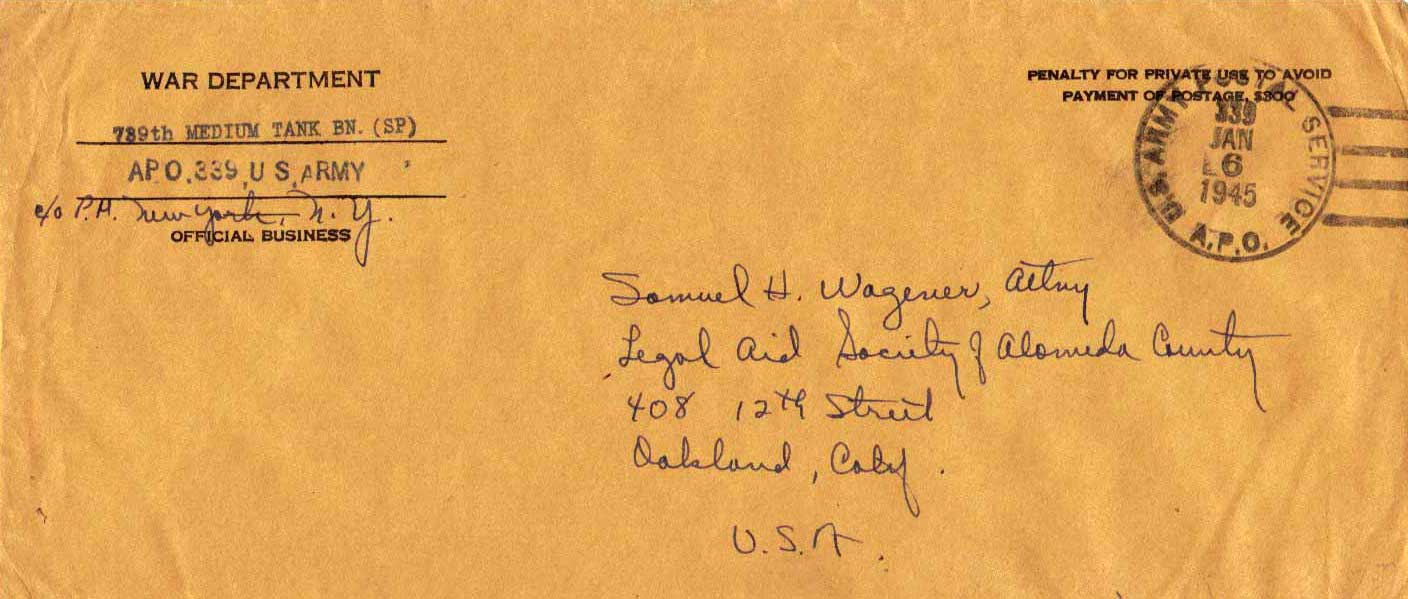 WAR DEPARTMENT
789th MEDIUM TANK BN. (SP)
APO, 339, U S, ARMY
c/o P.M. New York, N. Y.
OFFICIAL BUSINESS
PENALTY FOR PRIVATE USE TO AVOID
PAYMENT OF POSTAGE, $300
U.S. ARMY POSTAL SERVICE
339
JAN
6
1945
A.P.O.
Samuel H. Wagener, Attny
Legal Aid Society of Alameda County
408 12th Street
Oakland, Calif.
U.S.A.